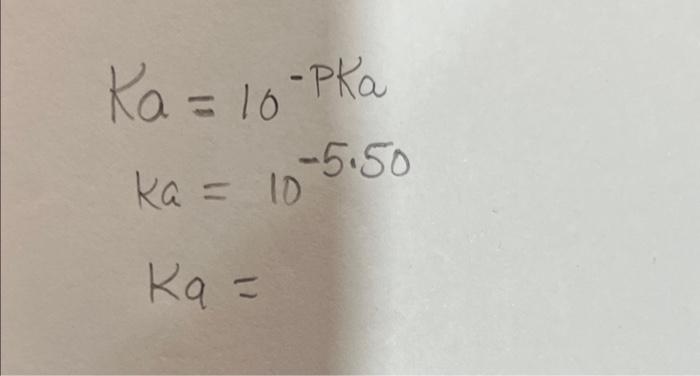 Ka = 10^-PKa
Ka = 10^-5.50
Ka =